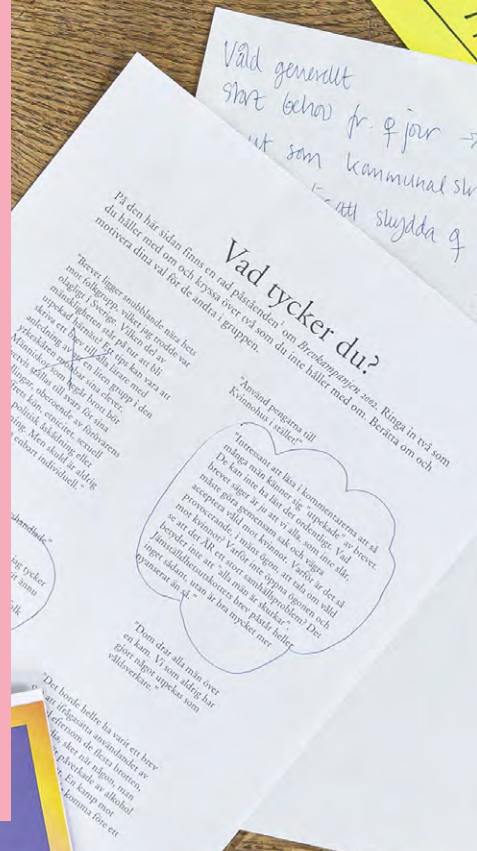 Våld generellt
stort behov fr. ♀ jour →
ut som kommunal
att skydda ♀
Vad tycker du?
På den här sidan finns en rad påståenden om Brevkampanjen 2012. Ringa in två som
du håller med om och kryssa över två som du inte håller med om. Berätta om och
motivera dina val för de andra i gruppen.
"Brevet ligger snubblande nära hets
mot folkgrupp, vilket jag trodde var
olagligt i Sverige. Vilken del av
mänskligheten står på tur att bli
utpekad härnäst? Ett tips kan vara att
skrive ett brev till alla lärare med
anledning av att en liten grupp i den
yrkeskåren
sina elever.
Människor som begår brott bör
ställas till svars för sina
oberoende av förövarens
kön, etnicitet, sexuell
politisk åskådning eller
Men skuld är aldrig
enbart individuell."
jag tycker
ännu
"Använd pengarna till
Kvinnohus i stället!"
"Intressant att läsa i kommentarerna att så
många män känner sig "utpekade" av brevet.
De kan inte ha läst det ordentligt. Vad
brevet säger är ju att vi alla, som inte slår,
måste göra gemensam sak och vägra
acceptera våld mot kvinnor. Varför är det så
provocerande, i mäns ögon, att tala om våld
mot kvinnor? Varför inte öppna ögonen och
se att det ÄR ett stort samhällsproblem? Det
betyder inte att "alla män är skurkar".
Jämställdhetsutskottets brev påstår heller
inget sådant, utan är bra mycket mer
nyanserat än så."
"Dom drar alla män över
en kam. Vi som aldrig har
gjort något utpekas som
våldsverkare."
"Det borde hellre ha varit ett brev
att ifrågasätta användandet av
eftersom de flesta brotten,
sker när någon, man
påverkade av alkohol
En kamp mot
komma före ett